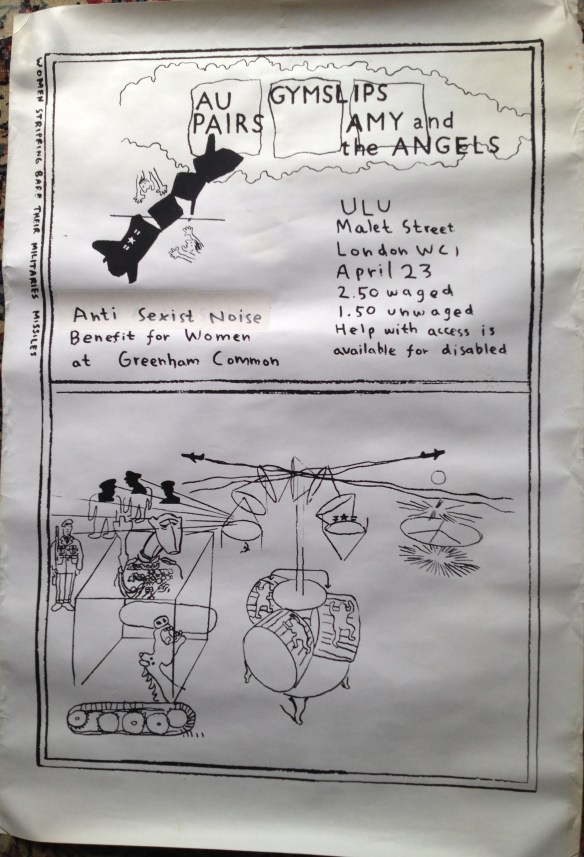 WOMEN STRIPPING BARE THEIR MILITARIES MISSILES
AU PAIRS
GYMSLIPS
AMY and the ANGELS
ULU
Malet Street
London WC1
April 23
2.50 waged
1.50 unwaged
Help with access is
available for disabled
Anti Sexist Noise
Benefit for Women
at Greenham Common